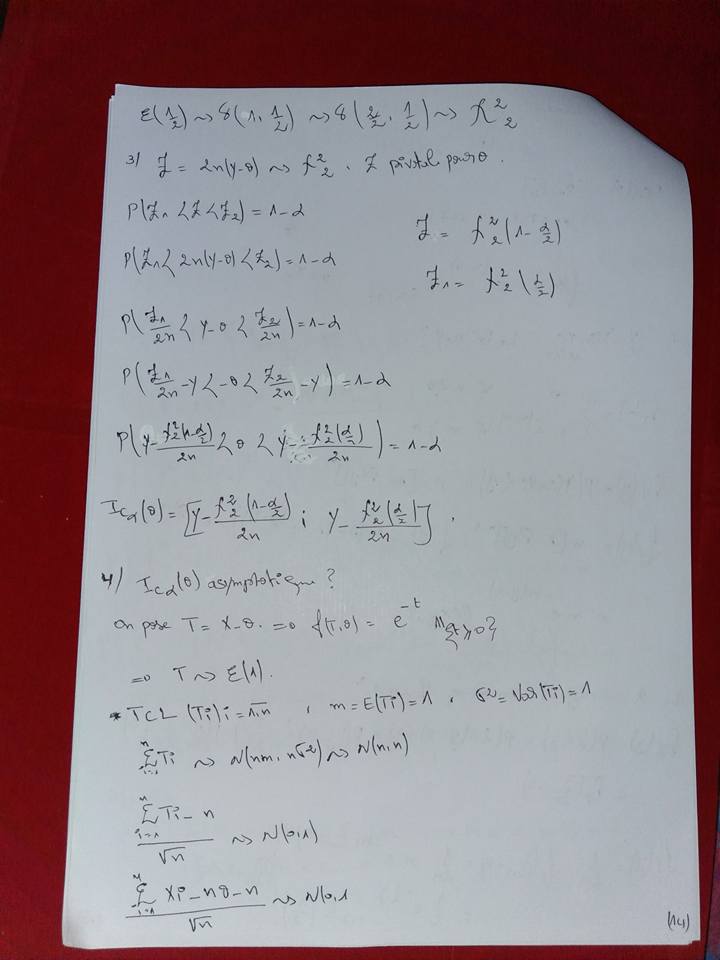 E(1/2) ~> γ(1, 1/2) ~> γ(2/2, 1/2) ~> χ²₂
3) Z = 2n(Y-θ) ~> χ²₂ . Z pivotal pour θ.
P(Z₁ < Z < Z₂) = 1-α
Z = χ²₂(1-α/2)
P(Z₁ < 2n(Y-θ) < Z₂) = 1-α
Z₁ = χ²₂(α/2)
P(Z₁/2n < Y-θ < Z₂/2n) = 1-α
P(Z₁/2n - Y < -θ < Z₂/2n - Y) = 1-α
P(Y - χ²₂(1-α/2)/2n < θ < Y - χ²₂(α/2)/2n) = 1-α
IC_α(θ) = [Y - χ²₂(1-α/2)/2n ; Y - χ²₂(α/2)/2n] .
4/ IC_α(θ) asymptotique ?
On pose T = X-θ. => f(T,θ) = e^{-t} 𝟙{t≥0}
=> T ~> E(1).
* TCL (Ti) i=1,n , m = E(Ti) = 1 , σ² = Var(Ti) = 1
∑_{i=1}^{n} Ti ~> N(nm, nσ²) ~> N(n,n)
(∑_{i=1}^{n} Ti - n)/√n ~> N(0,1)
(∑_{i=1}^{n} Xi - nθ - n)/√n ~> N(0,1
(14)